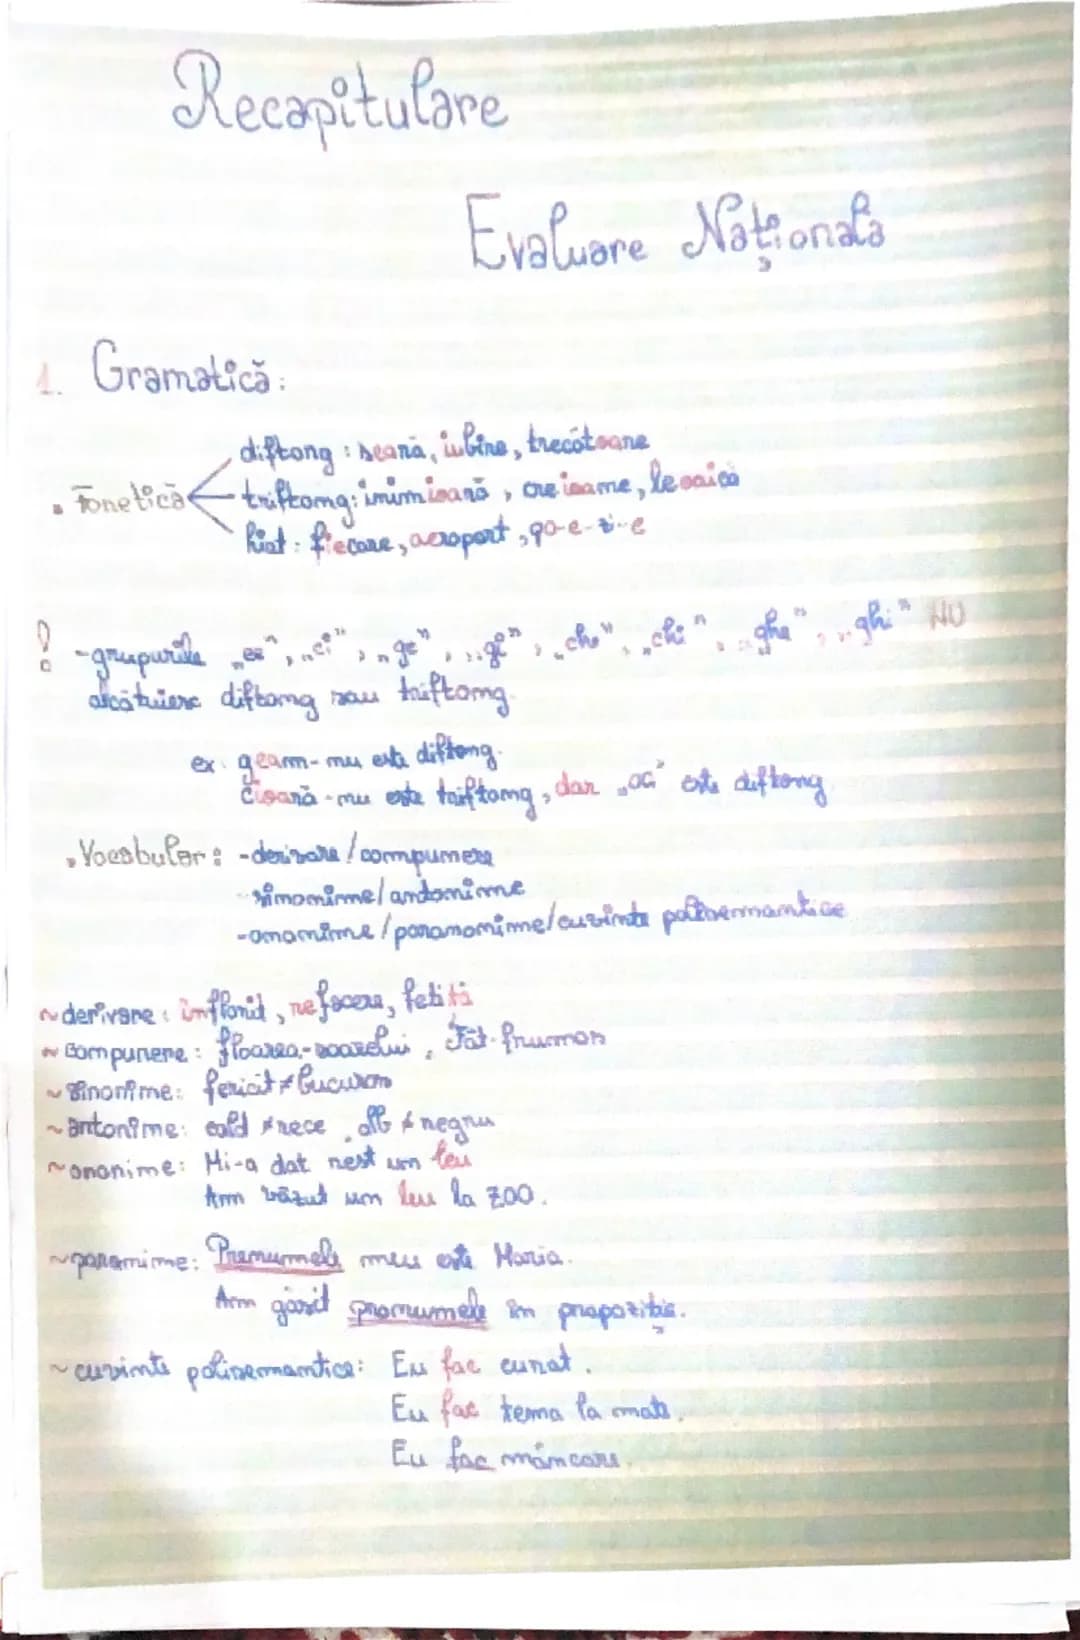 Recapitulare
Evaluare Națională
1. Gramatică:
diftong: seară, iubire, trecătoare
• Fonetică triftong: inimioară, creioane, leoaică
hiat: fiecare, aeroport, po-e-zi-e
! -grupurile „ce", „ci", „ge", „gi", „che", „chi", „ghe", „ghi" NU
alcătuiesc diftong sau triftong.
ex: geam - nu este diftong.
cioară - nu este triftong, dar „oa" este diftong.
• Vocabular: -derivare/compunere
-sinonime/antonime
-omonime/paronomime/cuvinte polisemantice
~ derivare: înflorit, refacere, fetiță
~ compunere: floarea-soarelui, Făt-frumos
~ sinonime: fericit ≠ bucuros
~ antonime: cald ≠ rece, alb ≠ negru
~ omonime: Mi-a dat rest un leu
Am văzut un leu la ZOO.
~ paronime: Prenumele meu este Maria.
Am găsit pronumele în propoziție.
~ cuvinte polisemantice: Eu fac curat.
Eu fac tema la mate.
Eu fac mâncare.